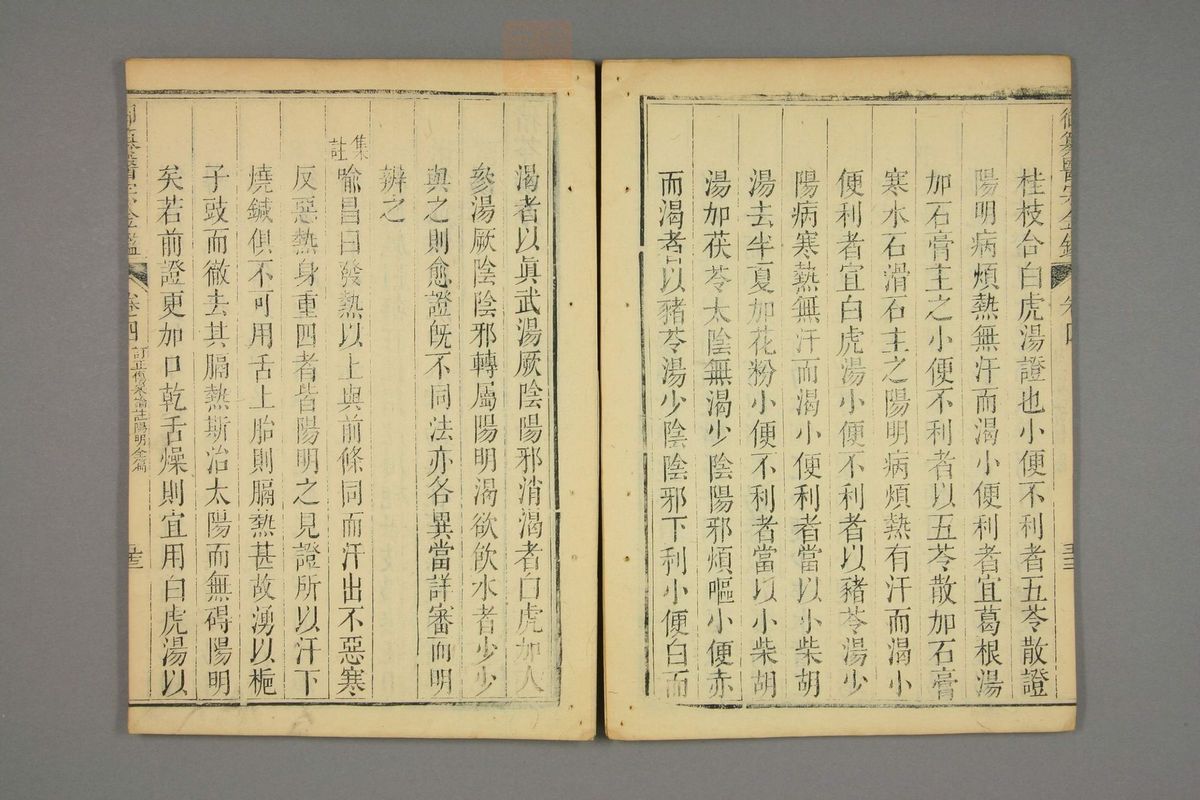 御纂醫宗金鑑
卷四
桂枝合白虎湯證也小便不利者五苓散證
陽明病煩熱無汗而渴小便利者宜葛根湯
加石膏主之小便不利者以五苓散加石膏
寒水石滑石主之陽明病煩熱有汗而渴小
便利者宜白虎湯小便不利者以豬苓湯少
陽病寒熱無汗而渴小便利者當以小柴胡
湯去半夏加花粉小便不利者當以小柴胡
湯加茯苓太陰無渴少陰陽邪煩嘔小便赤
而渴者以豬苓湯少陰陰邪下利小便白而
渴者以眞武湯厥陰陽邪消渴者白虎加人
參湯厥陰陰邪轉屬陽明渴欲飲水者少少
與之則愈證旣不同法亦各異當詳審而明
辨之
集註喻昌曰發熱以上與前條同而汗出不惡寒
反惡熱身重四者皆陽明之見證所以汗下
燒鍼俱不可用舌上胎則膈熱甚故湧以梔
子豉而徹去其膈熱斯治太陽而無碍陽明
矣若前證更加口乾舌燥則宜用白虎湯以
御纂醫宗金鑑
卷四
訂正傷寒論註陽明全篇